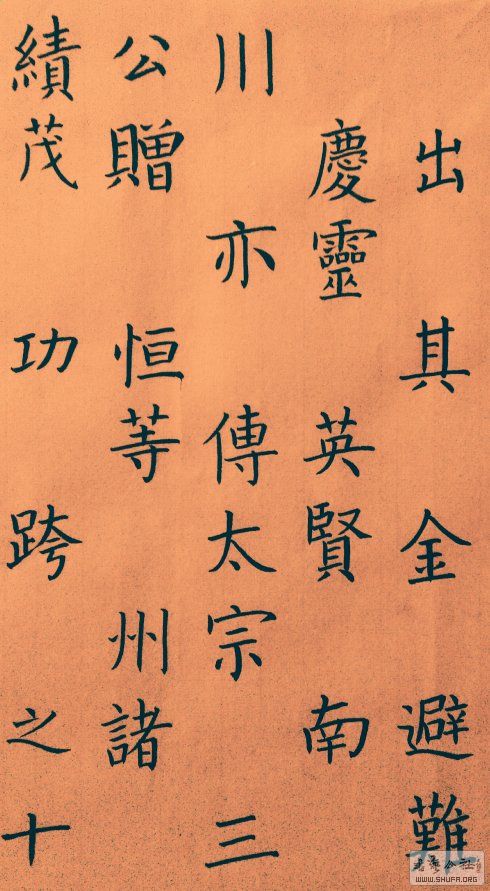 出其金避難
慶靈英賢南
川亦傳太宗三
公贈恒等州諸
績茂功跨之十
書法公社
WWW.SHUFA.ORG